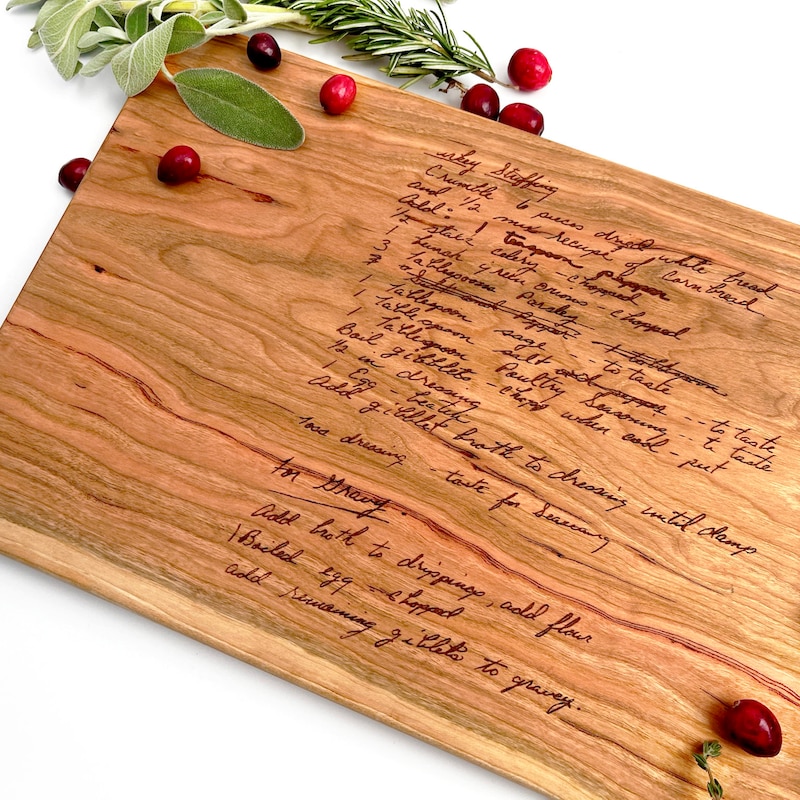 urkey Stuffing
Crumble 6 pieces dried white bread
and 1/2 recipe of Corn bread
Add:
1/2 stalk celery - chopped
1 bunch green onions - chopped
3 Tablespoons Parsley
1 Tablespoon sage -- to taste
1 Tablespoon salt -- to taste
1 Tablespoon Poultry Seasoning -- to taste
Boil gibblets - chop when cool - put
1/2 in dressing
1 Egg -
Add gibblet broth to dressing until damp
Toss dressing - taste for Seasoning
For Gravy:
Add broth to drippings, add flour
1 Boiled egg - chopped
add remaining gibblets to gravey.